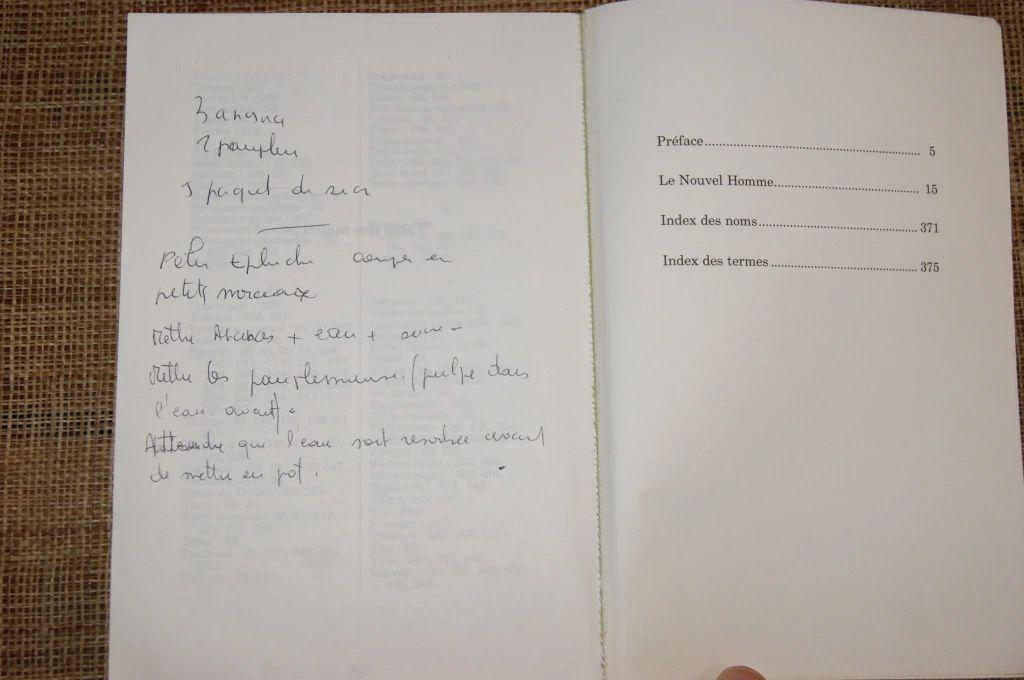 3 anana
2 pamplem
1 paquet de sucr
Peler Eplucher couper en
petits morceaux
Mettre Ananas + eau + sucre
Mettre les pamplemousse. (pulpe dans
l'eau avant).
Attendre que l'eau soit resorbée avant
de mettre en pot.
Préface 5
Le Nouvel Homme 15
Index des noms 371
Index des termes 375